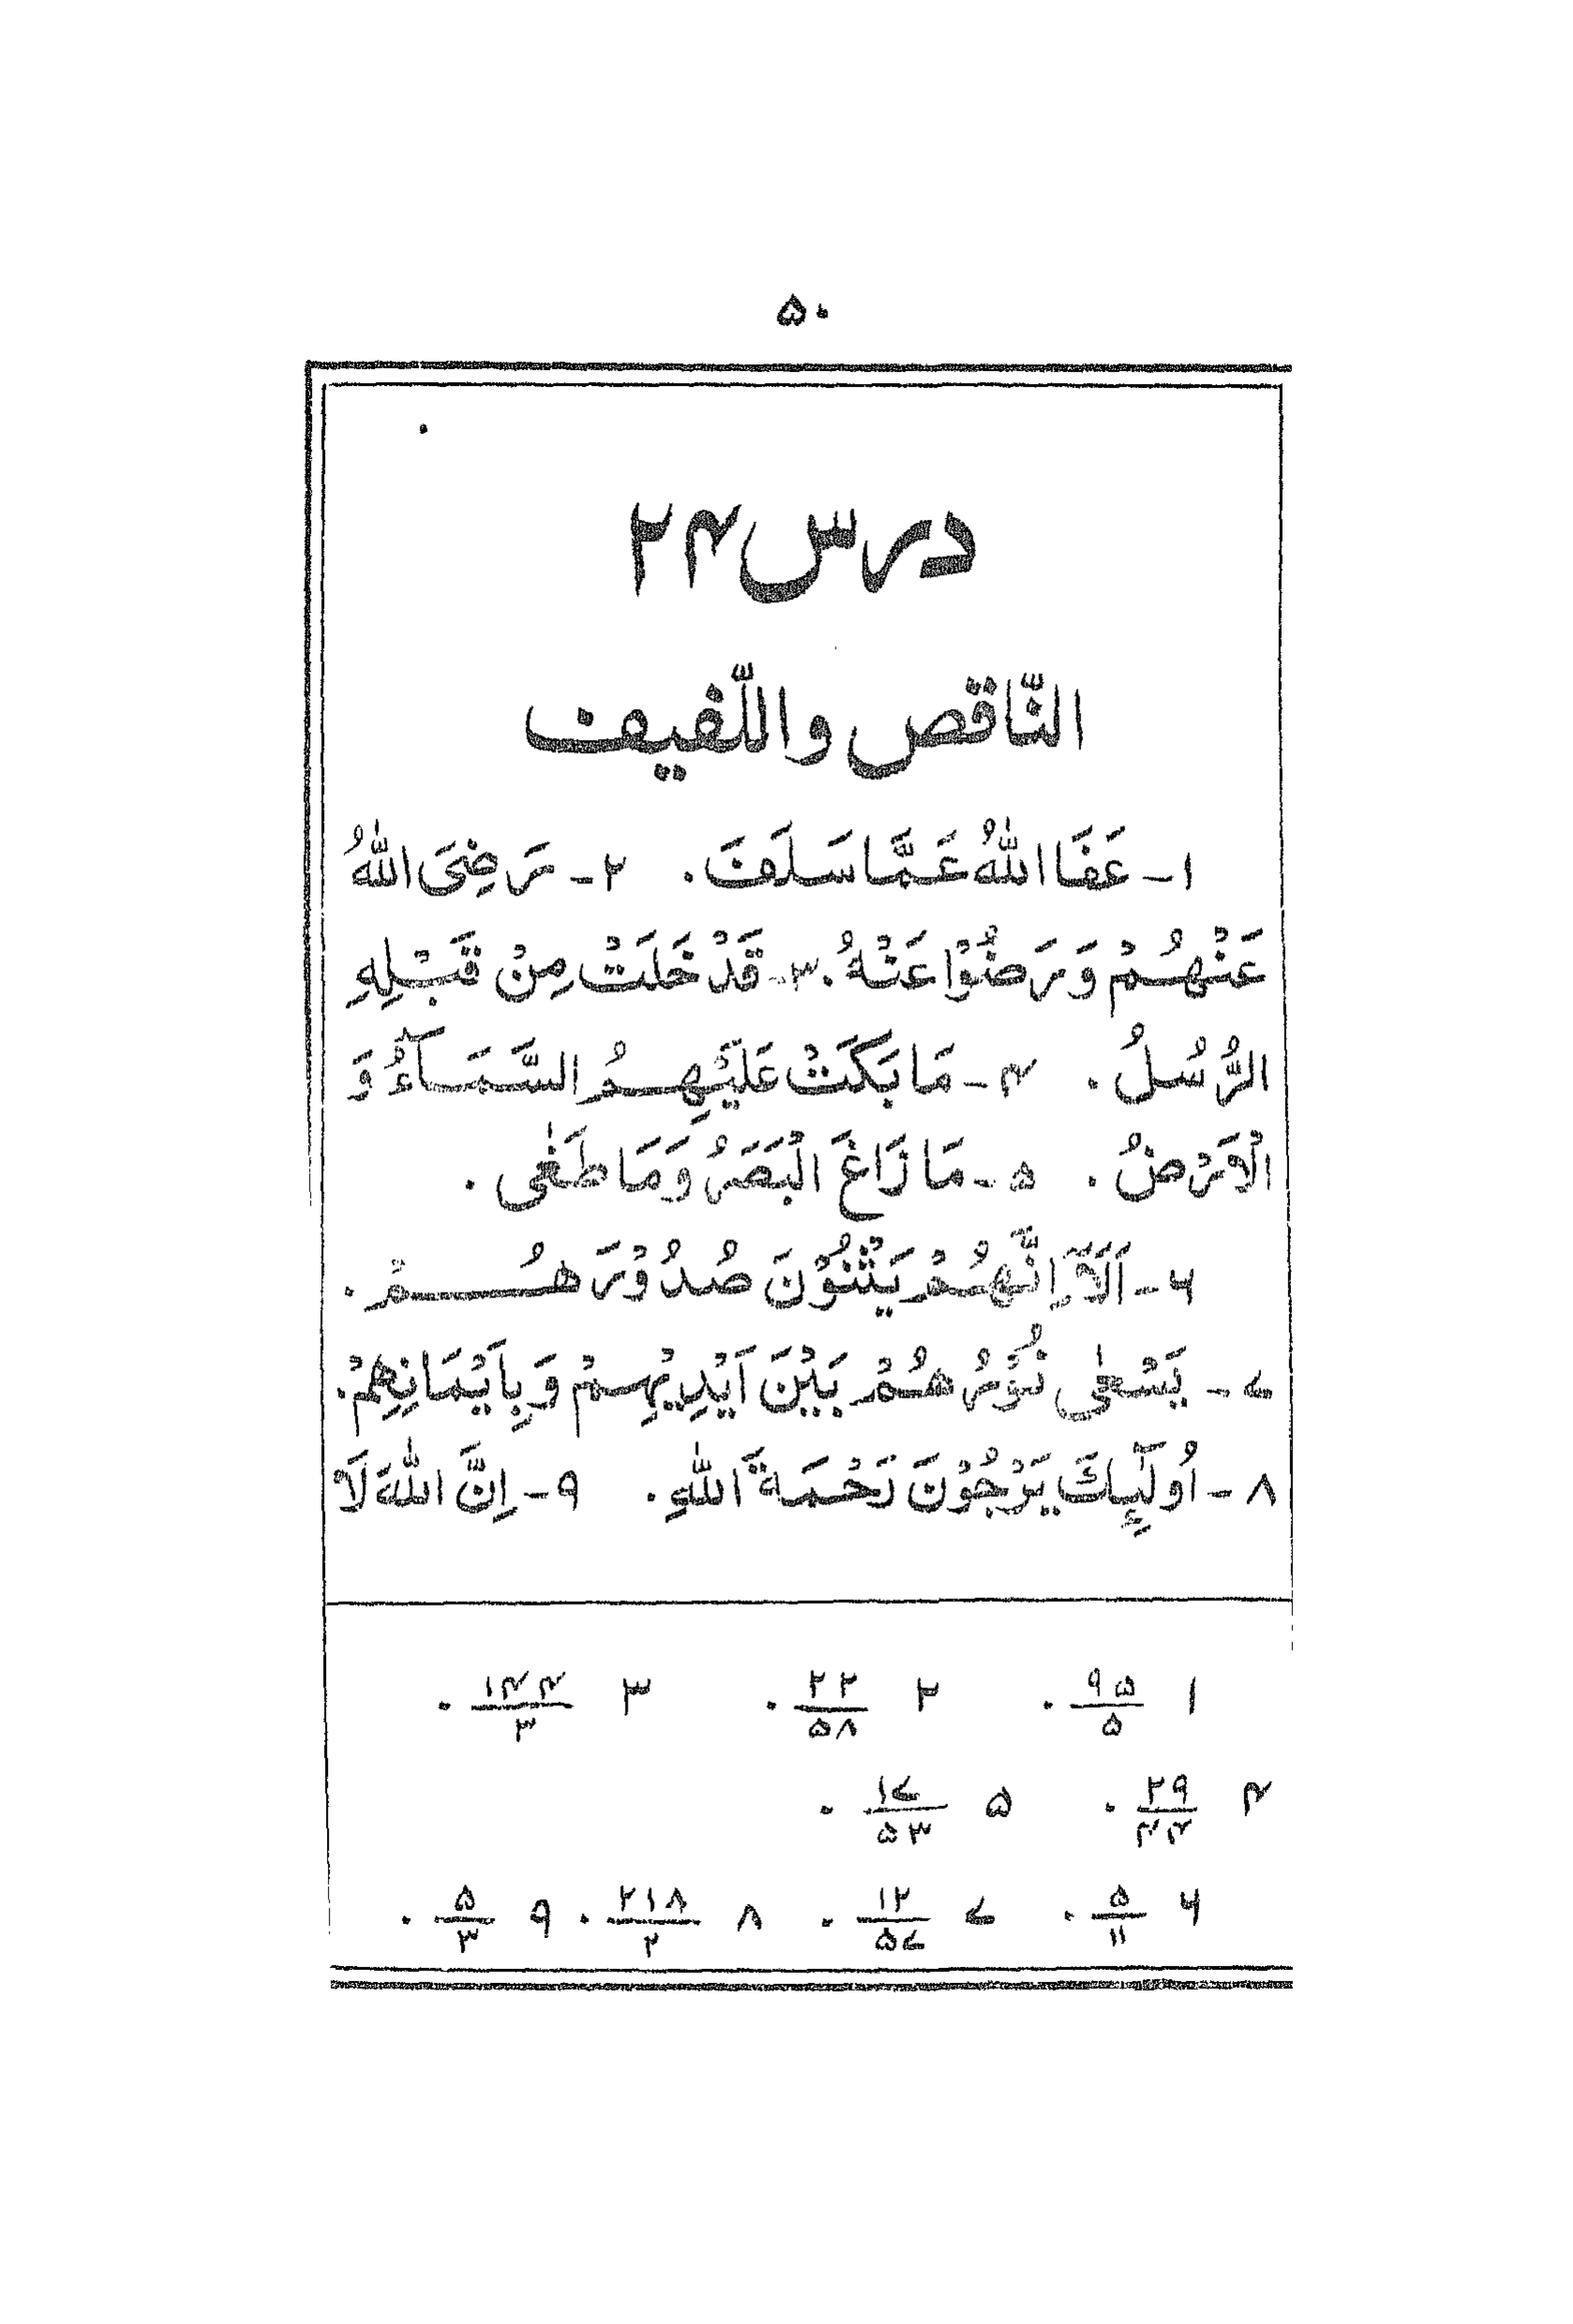 ۵۰
درس ۲۴
النّاقص واللّفيف
۱- عَفَا اللهُ عَمَّا سَلَفَ. ۲- رَضِىَ اللهُ
عَنْهُمْ وَرَضُوْا عَنْهُ. ۳- قَدْ خَلَتْ مِنْ قَبْلِهِ
الرُّسُلُ. ۴- مَا بَكَتْ عَلَيْهِمُ السَّمَآءُ وَ
الْاَرْضُ. ۵- مَا زَاغَ الْبَصَرُ وَمَا طَغٰى.
۶- اَلَآ اِنَّهُمْ يَثْنُوْنَ صُدُوْرَهُمْ.
۷- يَسْعٰى نُوْرُهُمْ بَيْنَ اَيْدِيْهِمْ وَبِاَيْمَانِهِمْ.
۸- اُولٰٓئِكَ يَرْجُوْنَ رَحْمَةَ اللهِ. ۹- اِنَّ اللهَ لَا
۱ ۹۵/۵ . ۲ ۲۲/۵۸ . ۳ ۱۴۴/۳ .
۴ ۲۹/۴۴ . ۵ ۱۷/۵۳ .
۶ ۵/۱۱ . ۷ ۱۲/۵۷ . ۸ ۲۱۸/۲ . ۹ ۵/۳ .